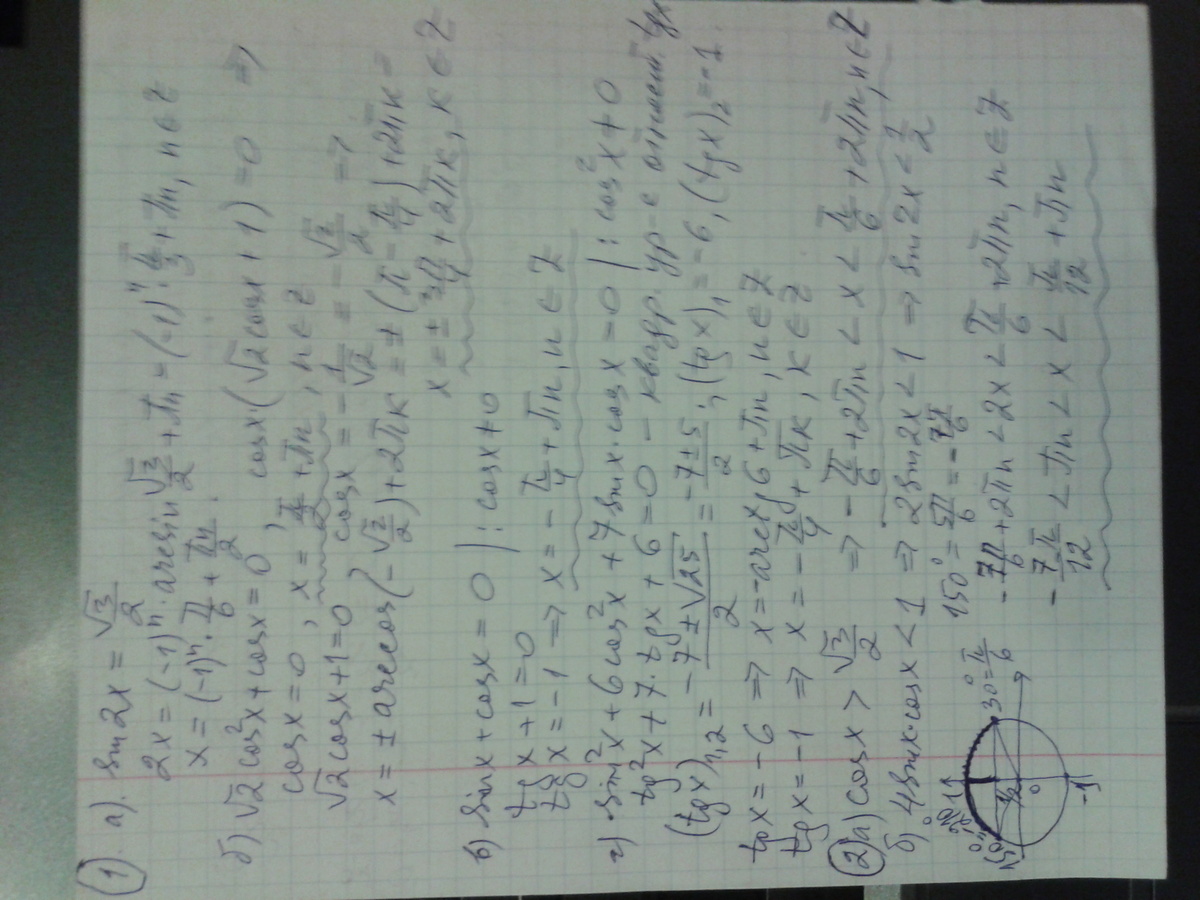 1). а). sin 2x = √3/2
2x = (-1)ⁿ · arcsin √3/2 + πn = (-1)ⁿ · π/3 + πn, n ∈ Z
x = (-1)ⁿ · π/6 + πn/2.
б). √2 cos²x + cosx = 0, cosx · (√2 cosx + 1) = 0 ⇒
cosx = 0, x = π/2 + πn, n ∈ Z
√2 cosx + 1 = 0 cosx = -1/√2 = -√2/2 ⇒
x = ± arccos(-√2/2) + 2πk = ± (π - π/4) + 2πk =
x = ± 3π/4 + 2πk, k ∈ Z
в) sinx + cosx = 0 | : cosx ≠ 0
tgx + 1 = 0
tgx = -1 ⇒ x = -π/4 + πn, n ∈ Z
г) sin²x + 6cos²x + 7sinx·cosx = 0 | : cos²x ≠ 0
tg²x + 7·tgx + 6 = 0 – квадр. ур-е относит. tgx
(tgx)1,2 = (-7 ± √25)/2 = (-7 ± 5)/2; (tgx)1 = -6, (tgx)2 = -1.
tgx = -6 ⇒ x = -arctg6 + πn, n ∈ Z
tgx = -1 ⇒ x = -π/4 + πk, k ∈ Z
2) а) cosx > √3/2 ⇒ -π/6 + 2πn < x < π/6 + 2πn, n ∈ Z
б) 4sinx·cosx < 1 ⇒ 2sin2x < 1 ⇒ sin2x < 1/2
150° = 5π/6 = -7π/6
30° = π/6
1
150°
1/2
0
-1
-7π/6 + 2πn < 2x < π/6 + 2πn, n ∈ Z
-7π/12 + πn < x < π/12 + πn